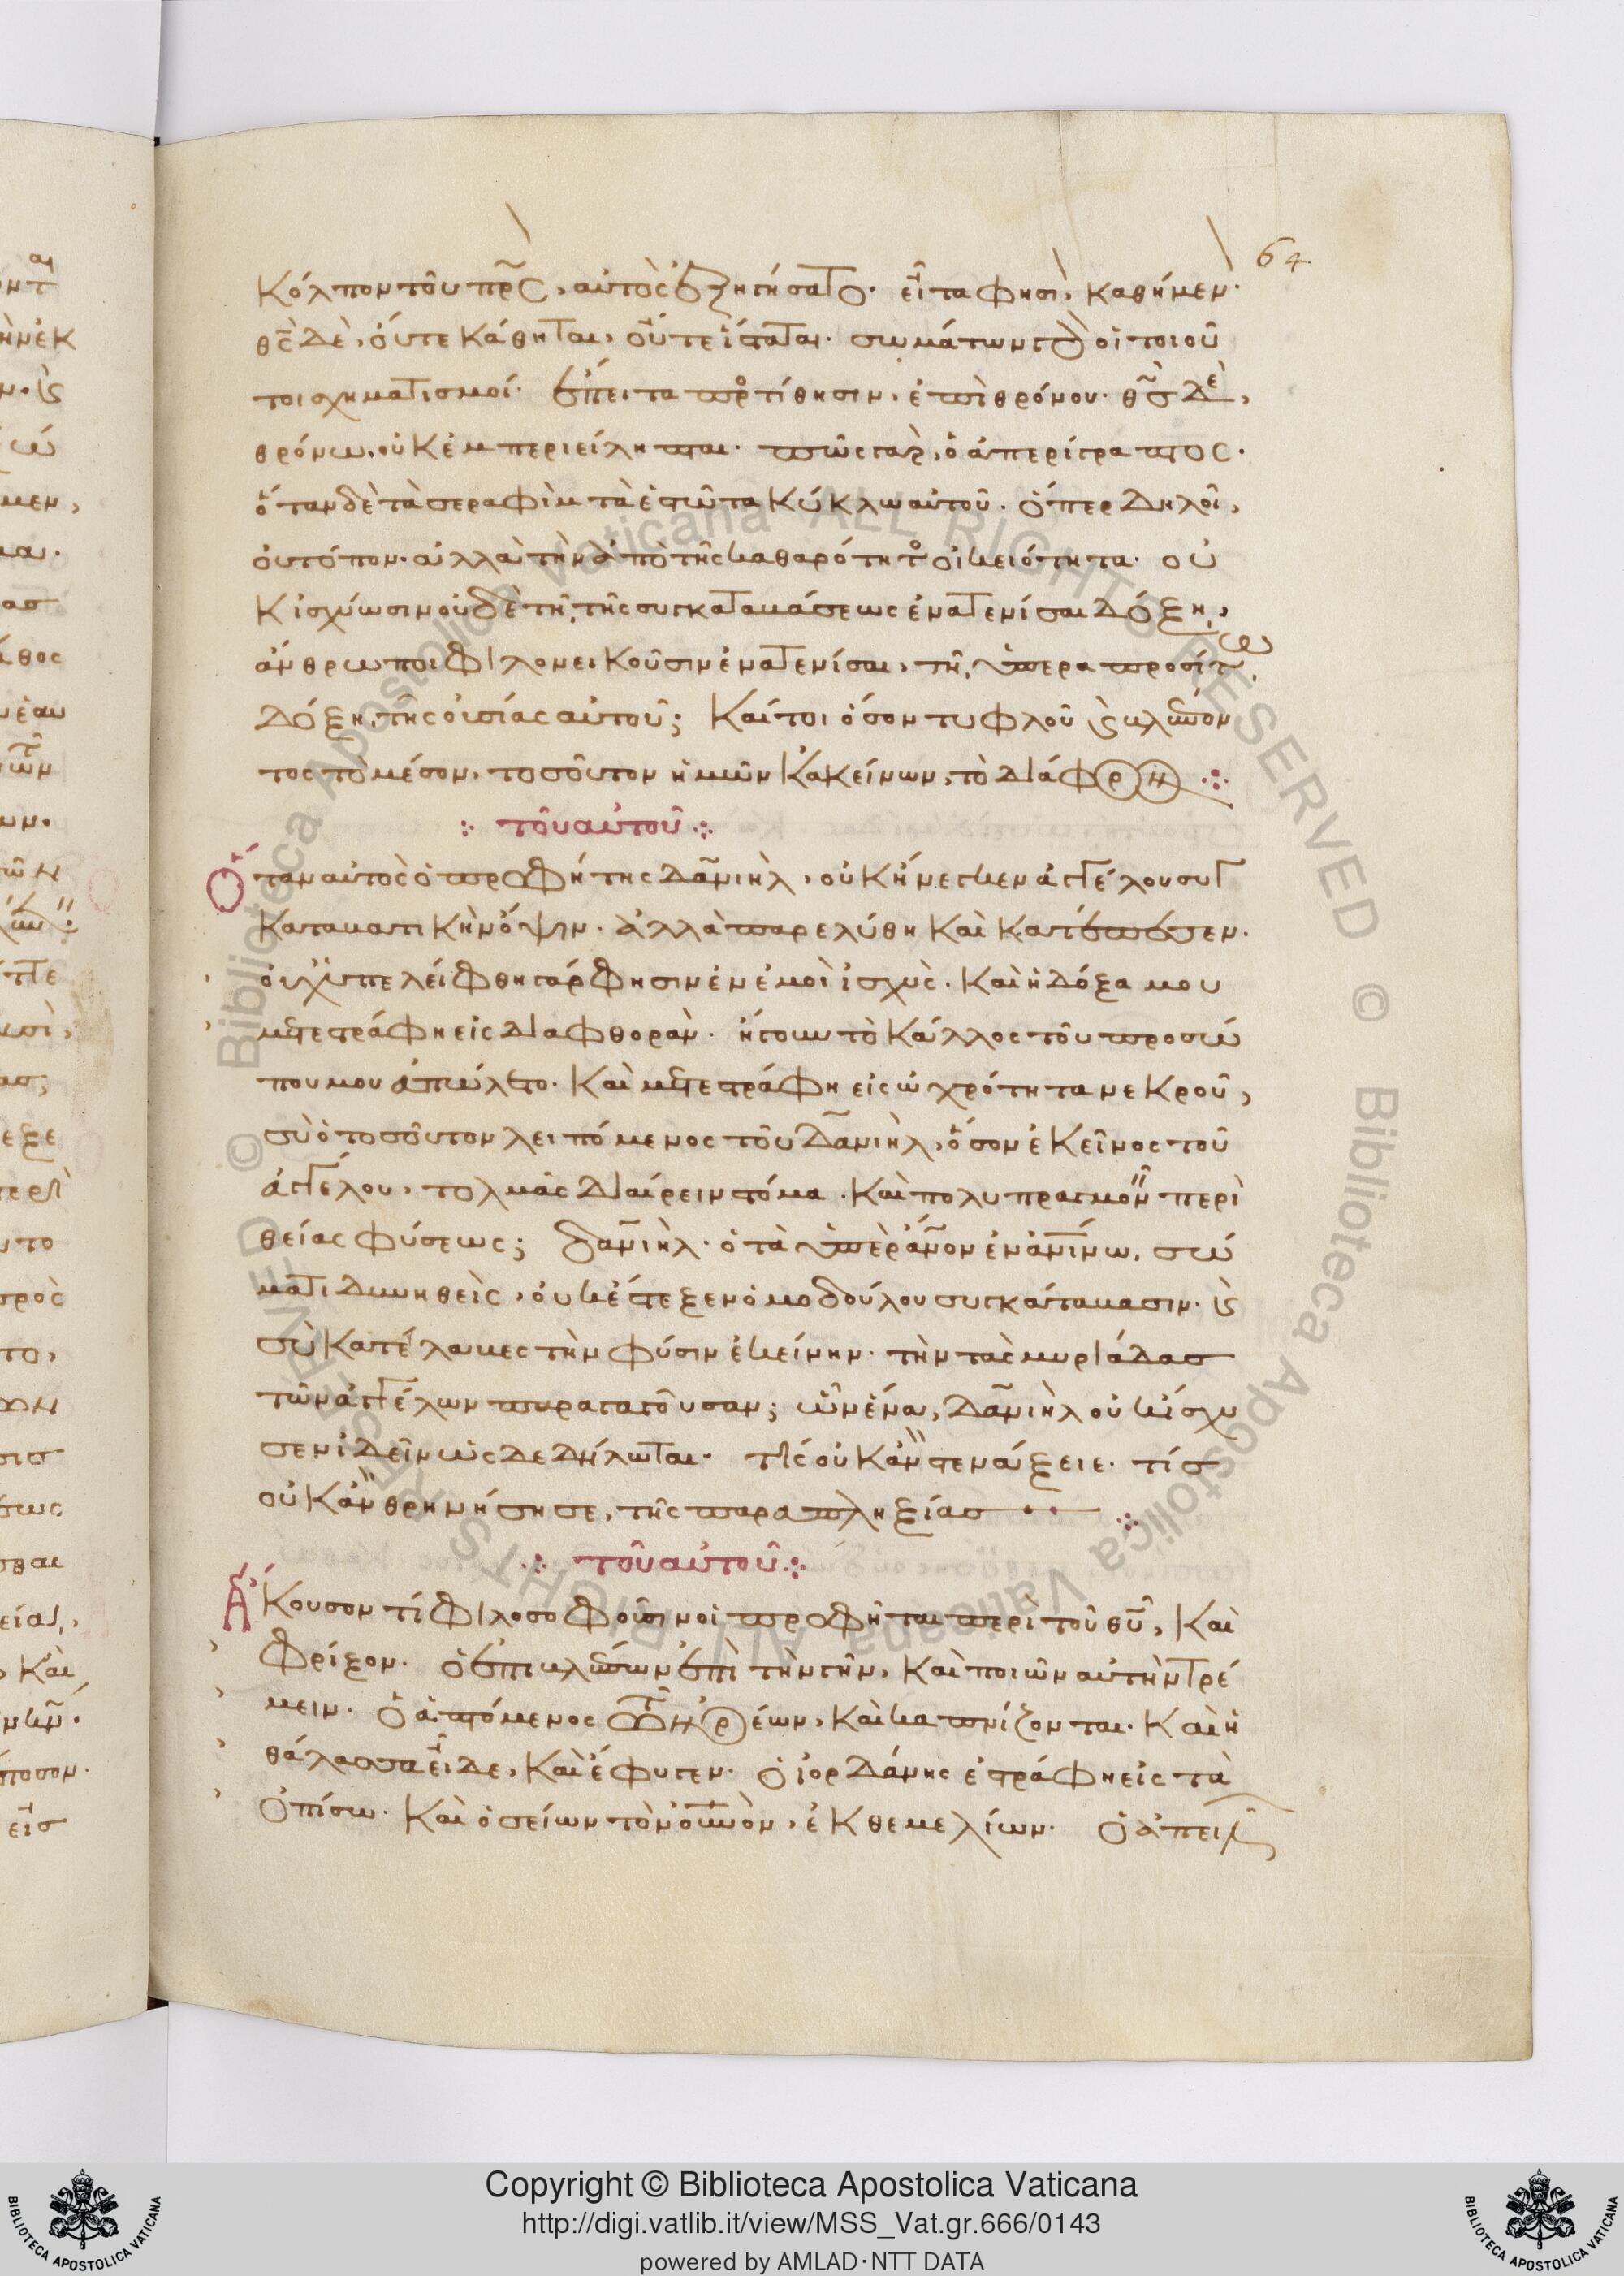 64
κόλπον τοῦ πρ̅ς, αὐτὸς ἐξηγήσατο. εἶτα φησὶ, καθήμεν·
θ̅ς̅ δὲ, οὔτε κάθηται, οὔτε ἵσταται. σωμάτων γὰρ οἱ τοιοῦ
τοι σχηματισμοί. ἔπειτα προστίθησιν, ἐπὶ θρόνου. θ̅ς̅ δὲ,
θρόνω, οὐκ ἐμπεριείληπται. πῶς γὰρ, ὁ ἀπερίγραπτος.
ὅταν δὲ τὰ σεραφὶμ τὰ ἑστῶτα κύκλω αὐτοῦ. ὅπερ δηλοῖ,
οὐ τόπον. ἀλλὰ τὴν ἀπὸ τῆς καθαρότητος οἰκειότητα. οὐ
κ ἰσχύωσιν οὐδὲ τῆ, τῆς συγκαταβάσεως ἐνατενίσαι δόξη,
ἄνθρωποι φιλονεικοῦσιν ἐνατενίσαι, τῆ, ὑπεραπροσίτω,
δόξη, τῆς οὐσίας αὐτοῦ; καίτοι ὅσον τυφλοῦ καὶ βλέπον
τος τὸ μέσον, τοσοῦτον ἡμῶν κἀκείνων, τὸ διάφορον
τοῦ αὐτοῦ
Ὅταν αὐτὸς ὁ προφήτης δα̅νιὴλ, οὐκ ἤνεγκεν ἀγγέλου συγ
καταβατικὴν ὄψιν. ἀλλὰ παρελύθη καὶ κατέπεσεν.
οὐχ ὑπελείφθη γάρ φησιν ἐν ἐμοὶ ἰσχὺς. καὶ ἡ δόξα μου
μετεστράφη εἰς διαφθορὰν. ἤγουν τὸ κάλλος τοῦ προσώ
που μου ἀπώλετο. καὶ μετεστράφη εἰς ὠχρότητα νεκροῦ,
σὺ ὁ τοσοῦτον λειπόμενος τοῦ δα̅νιὴλ, ὅσον ἐκεῖνος τοῦ
ἀγγέλου, τολμᾶς διαίρειν στόμα. καὶ πολυπραγμονεῖν περὶ
θείας φύσεως; δα̅νιὴλ. ὁ τὰ ὑπὲρ ἄν̅ον ἐν ἀν̅ίνω, σώ
ματι δυνηθεὶς, οὐκ ἔστεξεν ὁμοδούλου συγκατάβασιν. καὶ
σὺ κατέλαβες τὴν φύσιν ἐκείνην. τὴν τὰς μυριάδας
τῶν ἀγγέλων παραγαγοῦσαν; ὧν ἕνα, δα̅νιὴλ οὐκ ἴσχυ
σεν ἰδεῖν ὡς δεδήλωται. τίς οὐκ ἂν στενάξειε. τίς
οὐκ ἂν θρηνήση σε, τῆς παραπληξίας
τοῦ αὐτοῦ
Ἄκουσον τί φιλοσοφοῦσιν οἱ προφῆται περὶ τοῦ θ̅υ̅, καὶ
φρίξον. ὁ ἐπιβλέπων ἐπὶ τὴν γῆν, καὶ ποιῶν αὐτὴν τρέ
μειν. ὁ ἁπτόμενος τῶν ὀρέων, καὶ καπνίζονται. καὶ ἡ
θάλασσα εἶδε, καὶ ἔφυγεν. ὁ ἰορδάνης ἐστράφη εἰς τὰ
ὀπίσω. καὶ ὁ σείων τὸν οὐ̅νὸν, ἐκ θεμελίων. ὁ ἀπειλ
Copyright © Biblioteca Apostolica Vaticana
http://digi.vatlib.it/view/MSS_Vat.gr.666/0143
powered by AMLAD·NTT DATA